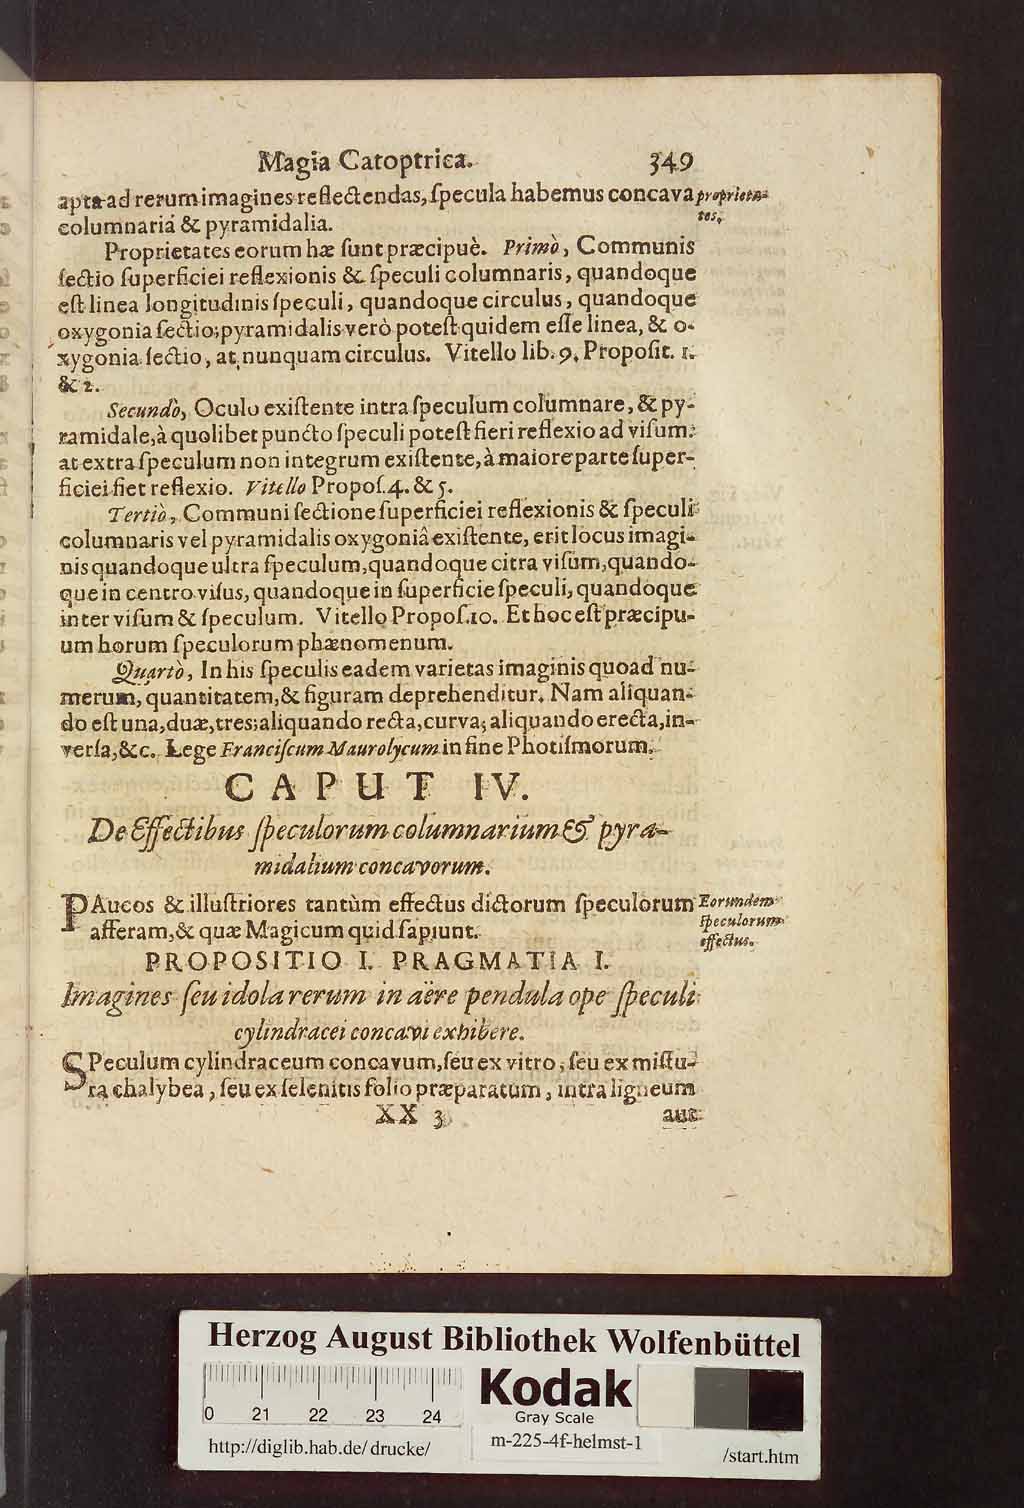 Magia Catoptrica. 349
apta ad rerum imagines reflectendas, ſpecula habemus concava
proprieta-
tes.
columnariá & pyramidalia.
Proprietates eorum hæ ſunt præcipuè. Primò, Communis
ſectio ſuperficiei reflexionis & ſpeculi columnaris, quandoque
eſt linea longitudinis ſpeculi, quandoque circulus, quandoque
oxygonia ſectio; pyramidalis verò poteſt quidem eſſe linea, & o-
xygonia ſectio, at nunquam circulus. Vitello lib. 9. Propoſit. 1.
& 2.
Secundò, Oculo exiſtente intra ſpeculum columnare, & py-
ramidale, à quolibet puncto ſpeculi poteſt fieri reflexio ad viſum:
at extra ſpeculum non integrum exiſtente, à maiore parte ſuper-
ficiei fiet reflexio. Vitello Propoſ. 4. & 5.
Tertiò, Communi ſectione ſuperficiei reflexionis & ſpeculi
columnaris vel pyramidalis oxygoniâ exiſtente, erit locus imagi-
nis quandoque ultra ſpeculum, quandoque citra viſum, quando-
que in centro viſus, quandoque in ſuperficie ſpeculi, quandoque
inter viſum & ſpeculum. Vitello Propoſ. 10. Et hoc eſt præcipu-
um horum ſpeculorum phænomenum.
Quartò, In his ſpeculis eadem varietas imaginis quoad nu-
merum, quantitatem, & figuram deprehenditur. Nam aliquan-
do eſt una, duæ, tres; aliquando recta, curva; aliquando erecta, in-
verſa, &c. Lege Franciſcum Maurolycum in fine Photiſmorum.
CAPUT IV.
De Effectibus ſpeculorum columnarium & pyra-
midalium concavorum.
PAucos & illuſtriores tantùm effectus dictorum ſpeculorum
afferam, & quæ Magicum quid ſapiunt.
Eorundem
ſpeculorum
effectus.
PROPOSITIO I. PRAGMATIA I.
Imagines ſeu idola rerum in aëre pendula ope ſpeculi
cylindracei concavi exhibere.
SPeculum cylindraceum concavum, ſeu ex vitro, ſeu ex miſtu-
ra chalybea, ſeu ex ſelenitis folio præparatum, intra ligneum
XX 3 aut
Herzog August Bibliothek Wolfenbüttel
0 21 22 23 24
Kodak
Gray Scale
http://diglib.hab.de/drucke/
m-225-4f-helmst-1
/start.htm